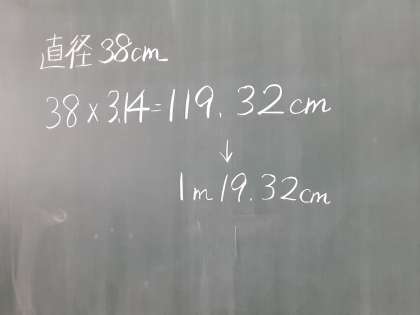 直径 38cm
38×3.14=119.32cm
↓
1m19.32cm